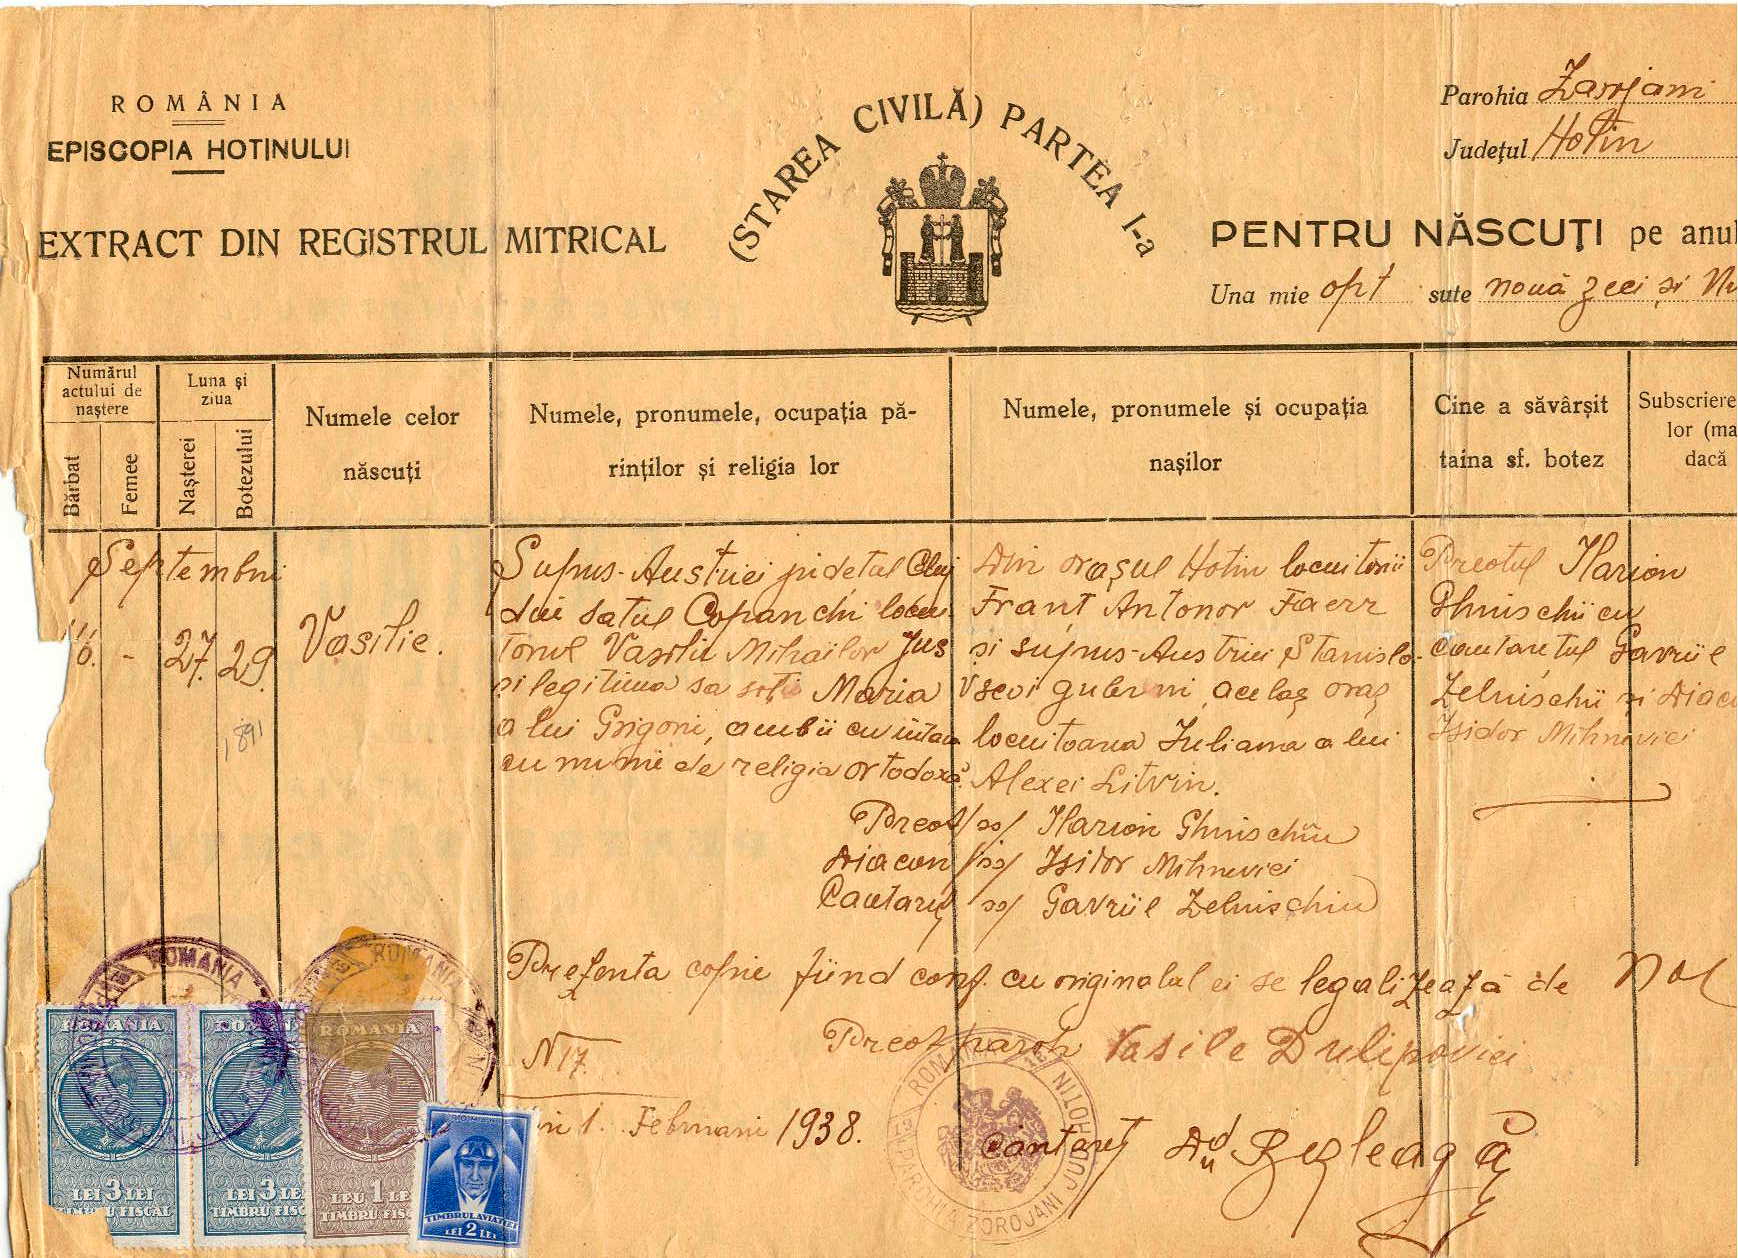 ROMÂNIA
EPISCOPIA HOTINULUI
(STAREA CIVILĂ) PARTEA I-a
Parohia Zarojani
Județul Hotin
EXTRACT DIN REGISTRUL MITRICAL
PENTRU NĂSCUȚI pe anul
Una mie opt sute nouă zeci și
Numărul actului de naștere
Bărbat
Femee
Luna și ziua
Nașterei
Botezului
Numele celor născuți
Numele, pronumele, ocupația părinților și religia lor
Numele, pronumele și ocupația nașilor
Cine a săvârșit taina sf. botez
Subscriere
lor (ma
dacă
Septembri
16. - 27. 29.
1891
Vasilie.
Supus-Austriei județul
lui satul Copanchi locu
torul Vasilii Mihailov Jus
și legitima sa soție Maria
a lui Grigori, ambii cu
de religia ortodoxă
Din orașul Hotin locuitorii
Franț Antonor Faerr
și supus-Austriei Stanislo-
guberni, acelaș oraș
locuitoarea Iuliana a lui
Alexei Litvin.
Preotul Ilarion
Ghnischii cu
cantarețul Gavriil
Zelnischii și Diaco
Isidor Mihnevici
Preot /ss/ Ilarion Ghnischiu
Diacon /ss/ Isidor Mihnevici
Cantareț /ss/ Gavriil Zelnischiu
Prezenta copie fiind conf. cu originalul ei se legalizează de Noi
Preot paroh Vasile Dulipovici
N 17.
1. Februarie 1938.
Cântareț
ROMANIA
ROMANIA
ROMANIA
LEI 3 LEI
TIMBRU FISCAL
LEI 3 LEI
TIMBRU FISC
LEU 1 LE
TIMBRU FISC
TIMBRUL AVIAȚIEI
LEI 2 LEI
ROMANIA
ROMANIA
ROMANIA
PAROHIA ZOROJANI JUD. HOTIN